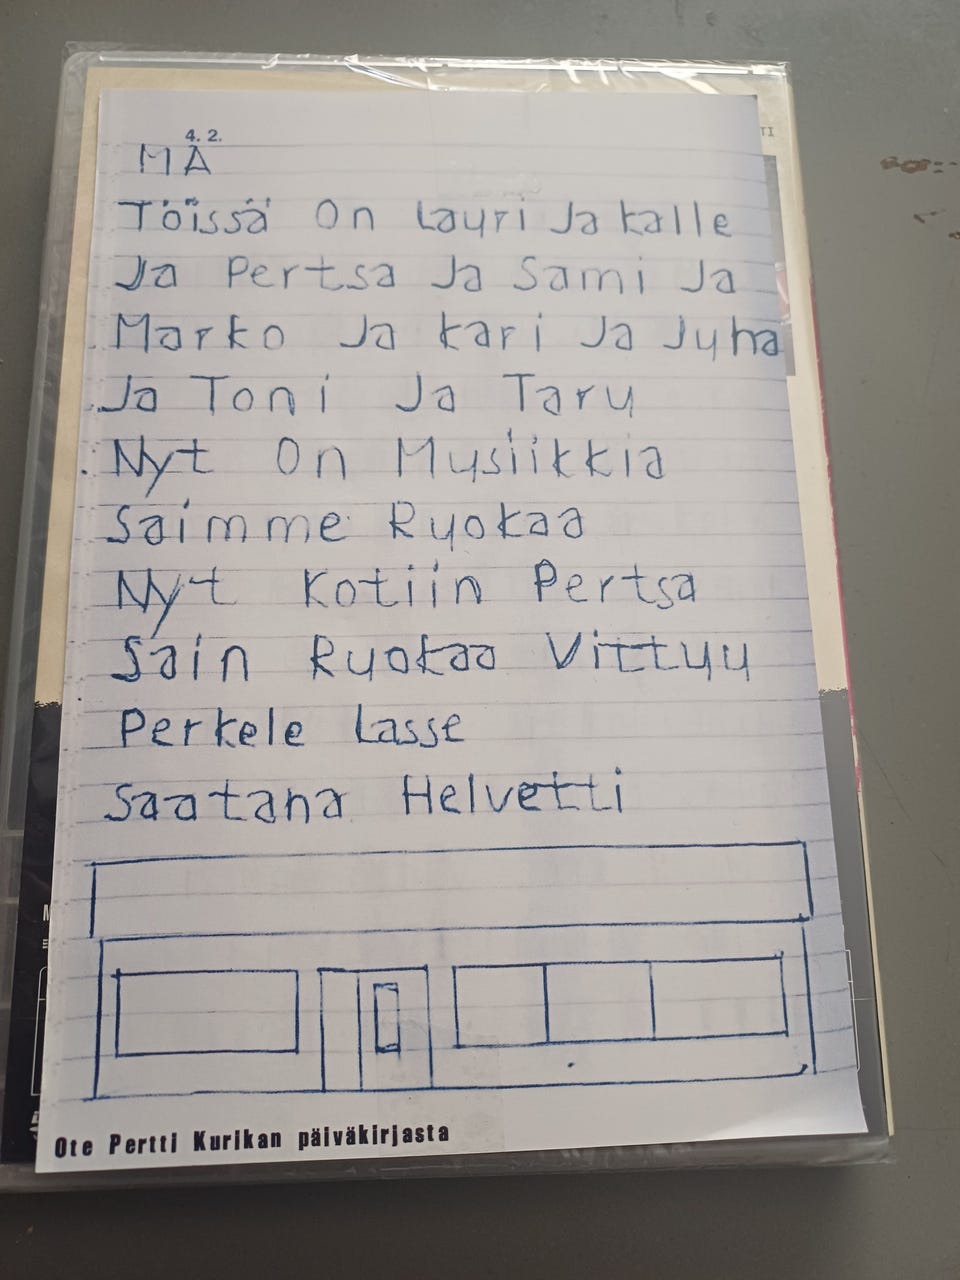 4. 2.
MA
Töissä On Lauri Ja kalle
Ja Pertsa Ja Sami Ja
Marko Ja kari Ja Juha
Ja Toni Ja Taru
Nyt On Musiikkia
Saimme Ruokaa
Nyt Kotiin Pertsa
Sain Ruokaa Vittuu
Perkele Lasse
Saatana Helvetti
Ote Pertti Kurikan päiväkirjasta